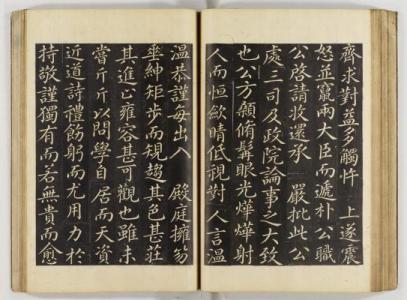 齊求對益多觸忤 上遂震
怒並竄兩大臣而遞朴公職
公啓請收還承 嚴批此公
處三司及政院論事之大致
也公方顙脩髯眼光燁燁射
人而恒歛睛低視對人言溫
溫恭謹每出入 殿庭擁笏
垂紳矩步而規趨其色甚莊
其進止雍容甚可觀也雖未
嘗斤斤以問學自居而天資
近道詩禮飭躬而尤用力於
持敬謹獨有而若無貴而愈